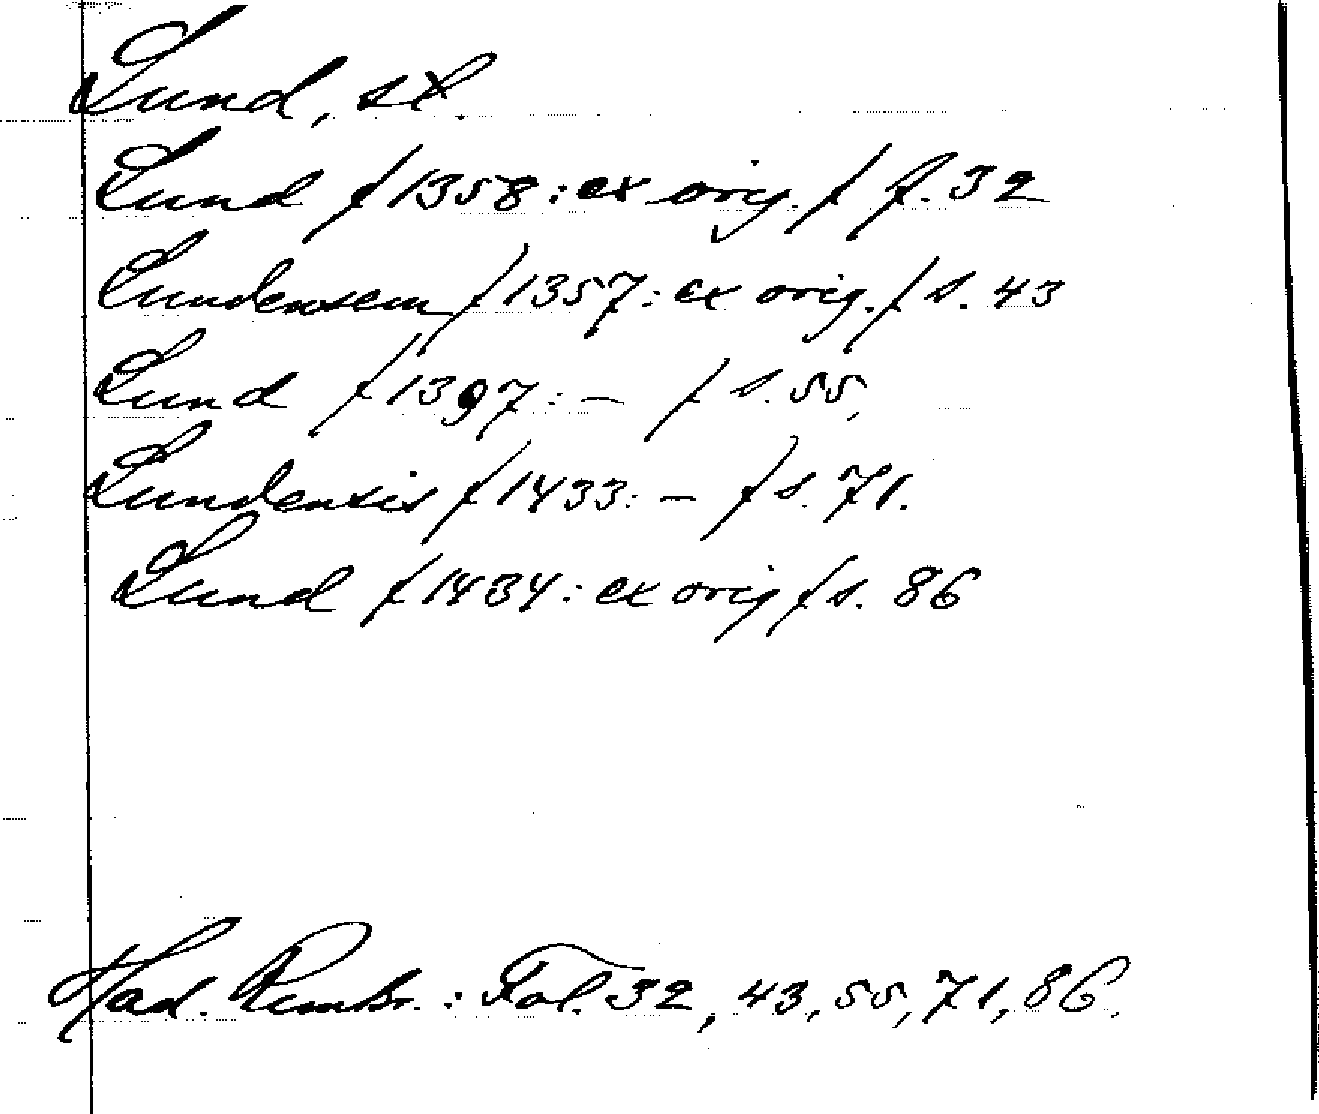 Lund, st.
Lund /1358: ex orig./ f. 32
Lundensem /1357: ex orig./ s. 43
Lund /1397: — / s. 55,
Lundensis /1433: — / s. 71.
Lund /1434: ex orig/ s. 86
Had. Rembr.: Fol. 32, 43, 55, 71, 86.